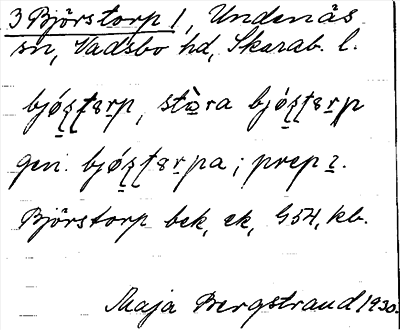 3 Björstorp 1, Undenäs
sn, Vadsbo hd, Skarab. l.
bjǿʂʈɐrp, stòra bjǿʂʈɐrp
gen. bjǿʂʈɐrpa; prep ɪ.
Björstorp bek, ek, G54, kb.
Maja Bergstrand 1930.